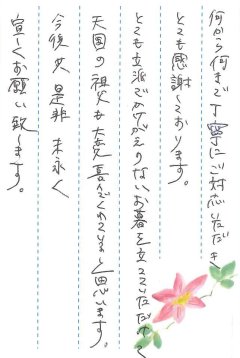 何から何まで丁寧にご対応いただき
とても感謝しております。
とても立派でかけがえのないお墓を立てていただけて
天国の祖父も大変喜んでくれていると思います。
今後共 是非 末永く
宜しくお願い致します。